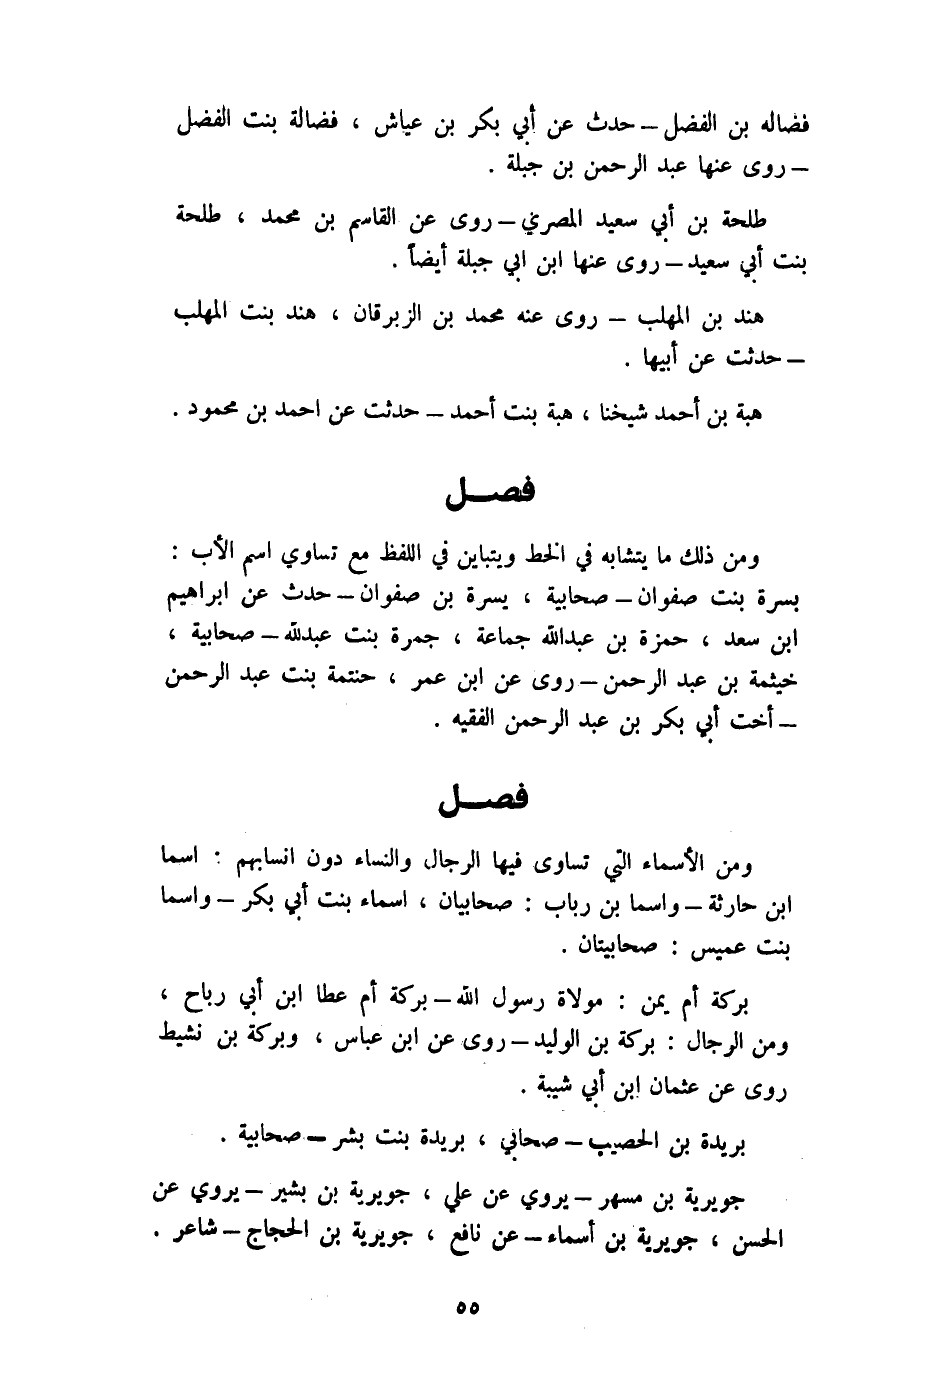 فضاله بن الفضل – حدث عن أبي بكر بن عياش ، فضالة بنت الفضل
– روى عنها عبد الرحمن بن جبلة .
طلحة بن أبي سعيد المصري – روى عن القاسم بن محمد ، طلحة
بنت أبي سعيد – روى عنها ابن ابي جبلة أيضاً .
هند بن المهلب – روى عنه محمد بن الزبرقان ، هند بنت المهلب
– حدثت عن أبيها .
هبة بن أحمد شيخنا ، هبة بنت أحمد – حدثت عن احمد بن محمود .
فصل
ومن ذلك ما يتشابه في الخط ويتباين في اللفظ مع تساوي اسم الأب :
بسرة بنت صفوان – صحابية ، يسرة بن صفوان – حدث عن ابراهيم
ابن سعد ، حمزة بن عبدالله جماعة ، جمرة بنت عبدلله – صحابية ،
خيثمة بن عبد الرحمن – روى عن ابن عمر ، حنتمة بنت عبد الرحمن
– أخت أبي بكر بن عبد الرحمن الفقيه .
فصل
ومن الأسماء التي تساوى فيها الرجال والنساء دون انسابهم : اسما
ابن حارثة – واسما بن رباب : صحابيان ، اسماء بنت أبي بكر – واسما
بنت عميس : صحابيتان .
بركة أم يمن : مولاة رسول الله – بركة أم عطا ابن أبي رباح ،
ومن الرجال : بركة بن الوليد – روى عن ابن عباس ، وبركة بن نشيط
روى عن عثمان ابن أبي شيبة .
بريدة بن الحصيب – صحابي ، بريدة بنت بشر – صحابية .
جويرية بن مسهر – يروي عن علي ، جويرية بن بشير – يروي عن
الحسن ، جويرية بن أسماء – عن نافع ، جويرية بن الحجاج – شاعر .
٥٥